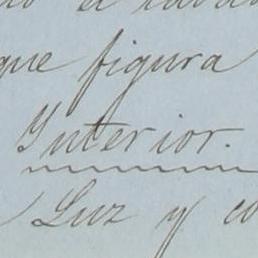 que figura
Interior.
Luz y